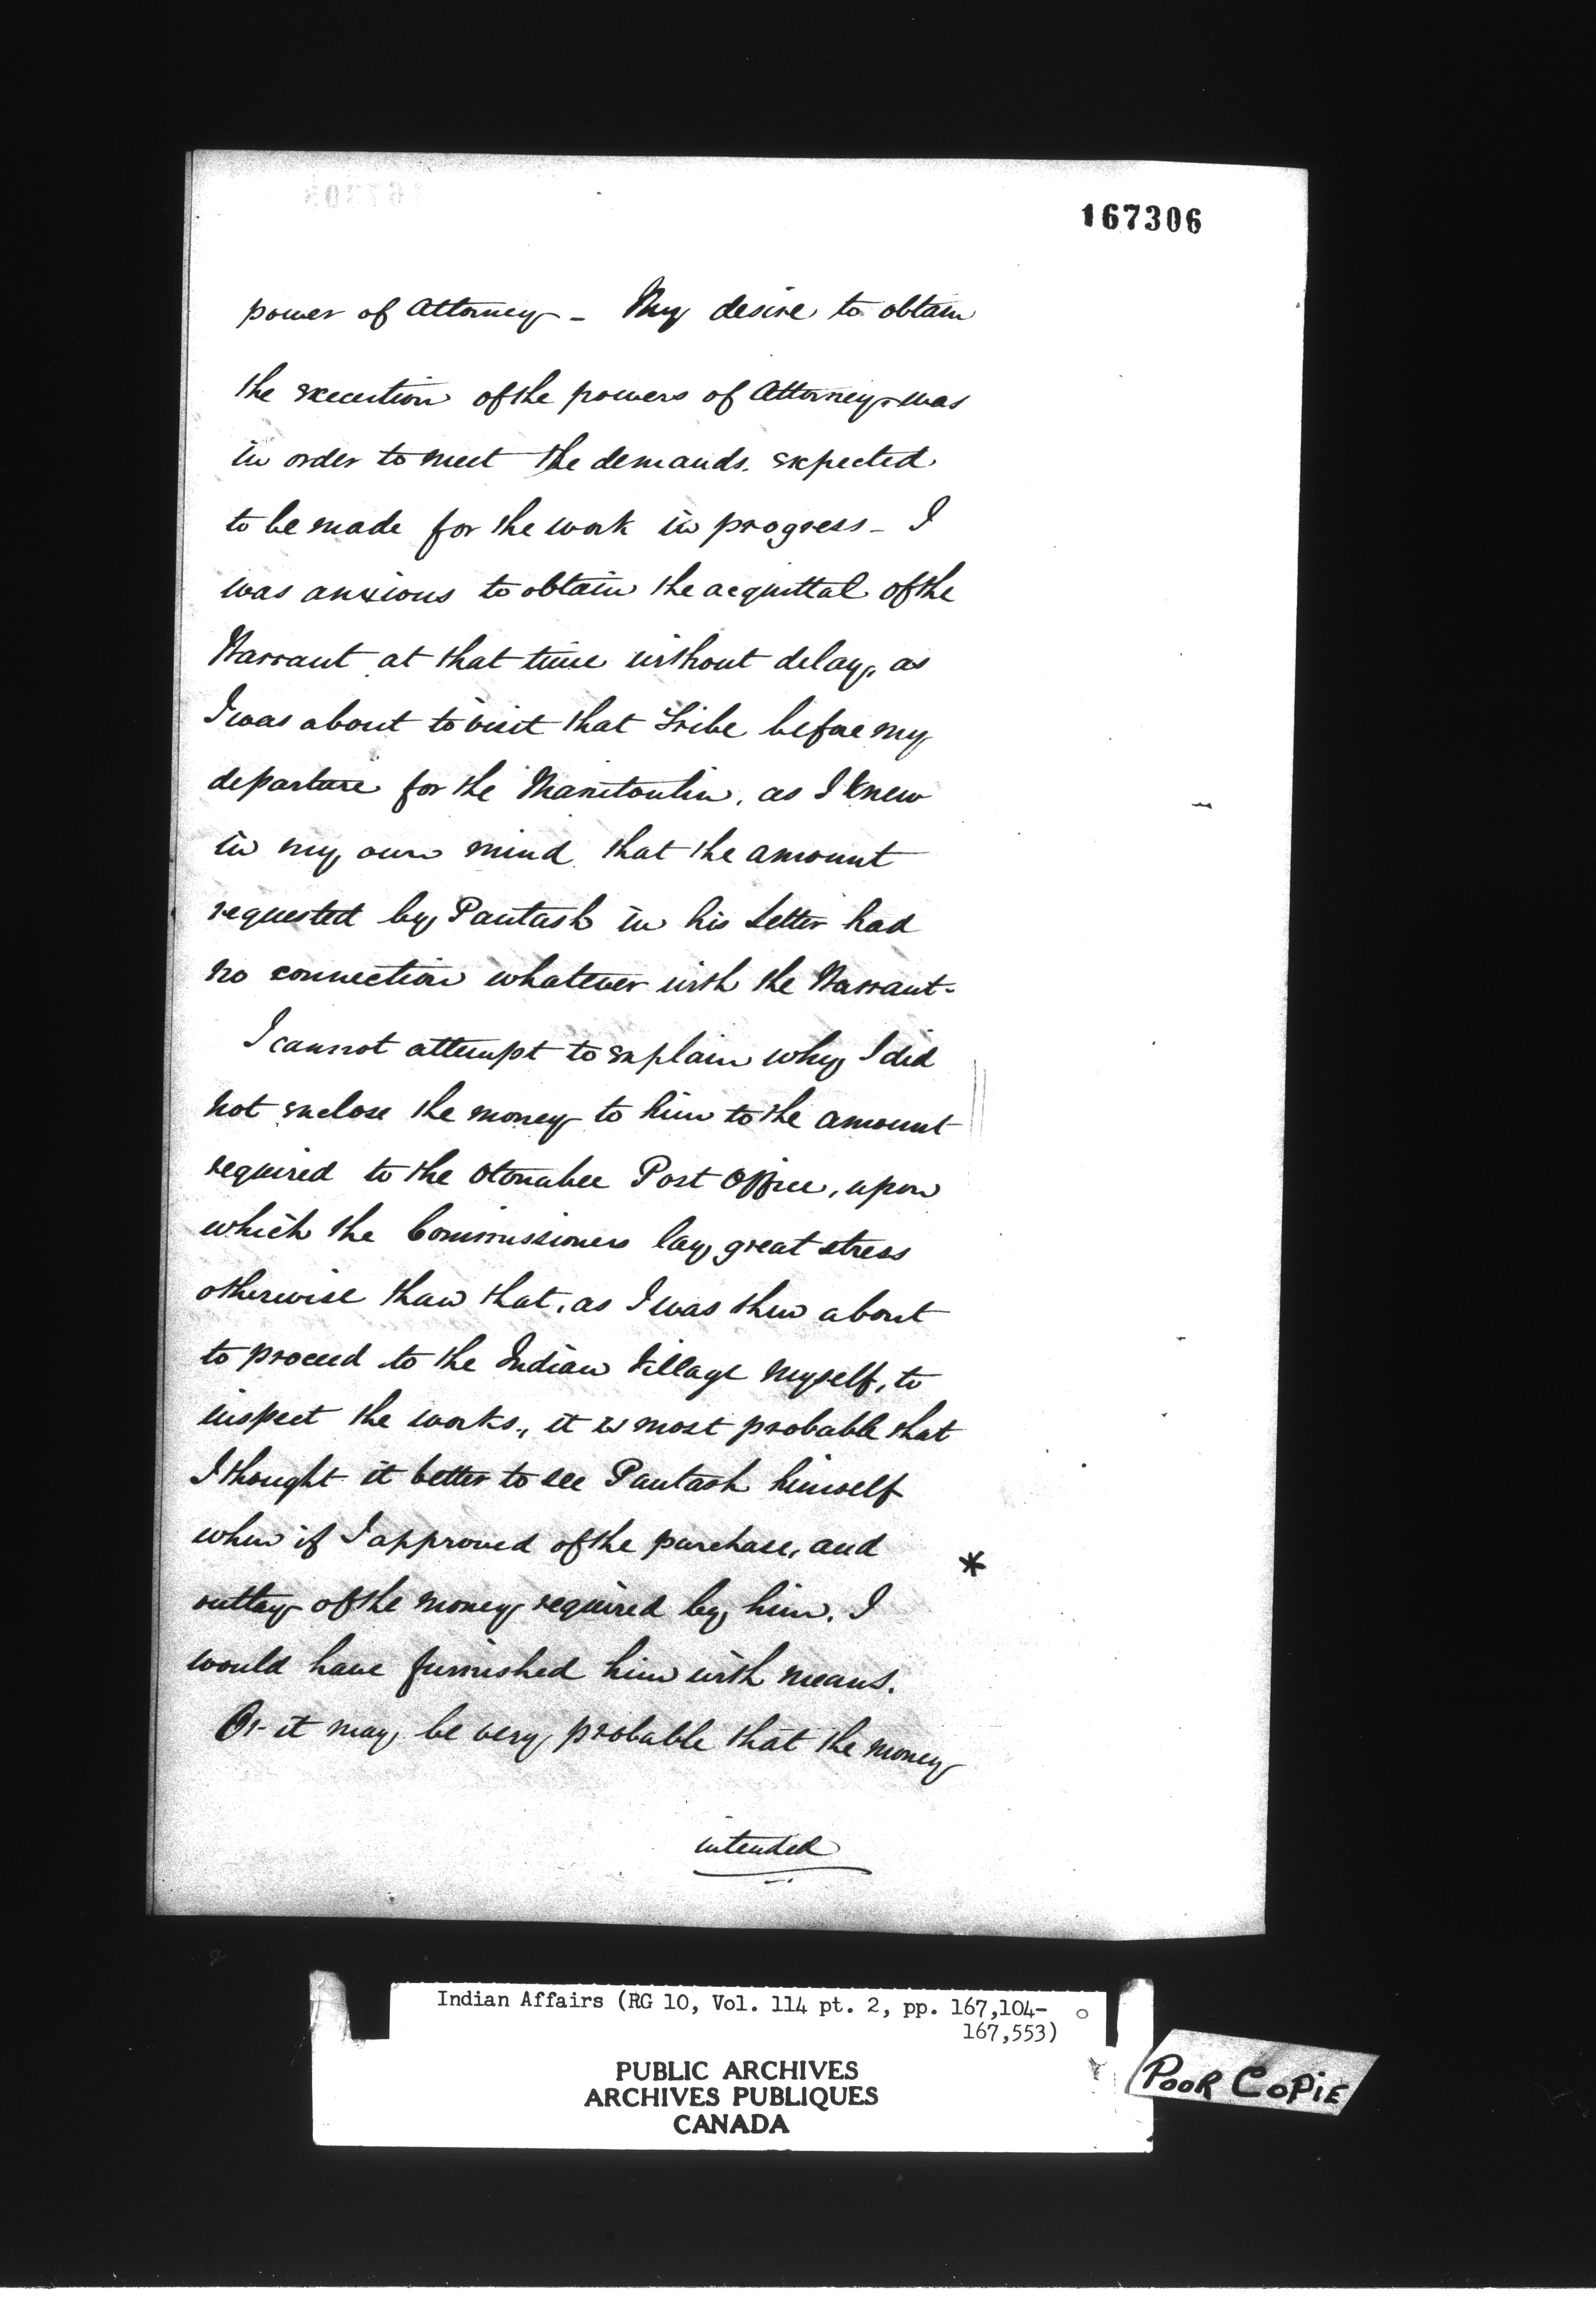 167306
power of Attorney - My desire to obtain
the execution of the powers of Attorney was
in order to meet the demands expected
to be made for the work in progress - I
was anxious to obtain the acquittal of the
Warrant at that time without delay, as
I was about to visit that Tribe before my
departure for the Manitoulin, as I knew
in my own mind that the amount
requested by Pautash in his Letter had
no connection whatever with the Warrant -
I cannot attempt to explain why I did
not enclose the money to him to the amount
required to the Otonabee Post Office, upon
which the Commissioners lay great stress
otherwise than that, as I was then about
to proceed to the Indian Village myself, to
inspect the works, it is most probable that
I thought it better to see Pautash himself
when if I approved of the purchase, and
*
outlay of the money required by him, I
would have furnished him with means.
Or it may be very probable that the money
intended
Indian Affairs (RG 10, Vol. 114 pt. 2, pp. 167,104-
167,553)
PUBLIC ARCHIVES
ARCHIVES PUBLIQUES
CANADA
POOR COPIE